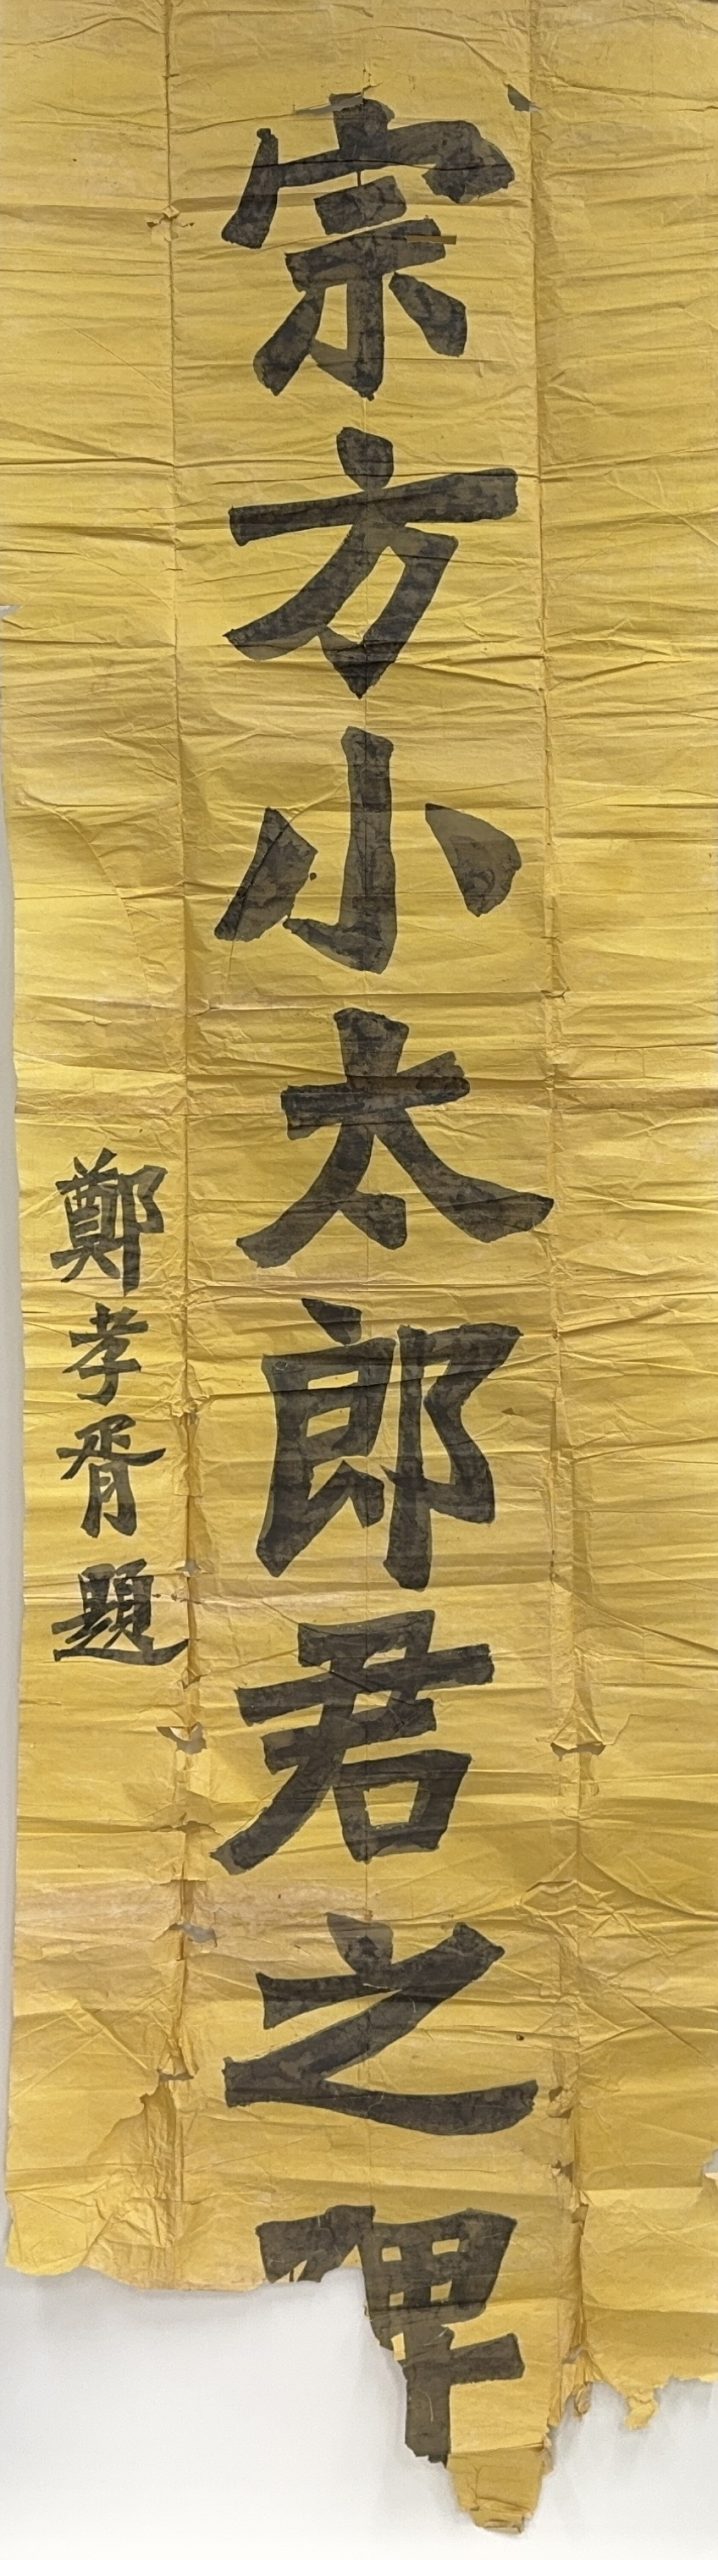 宗方小太郎君之碑
鄭孝胥題